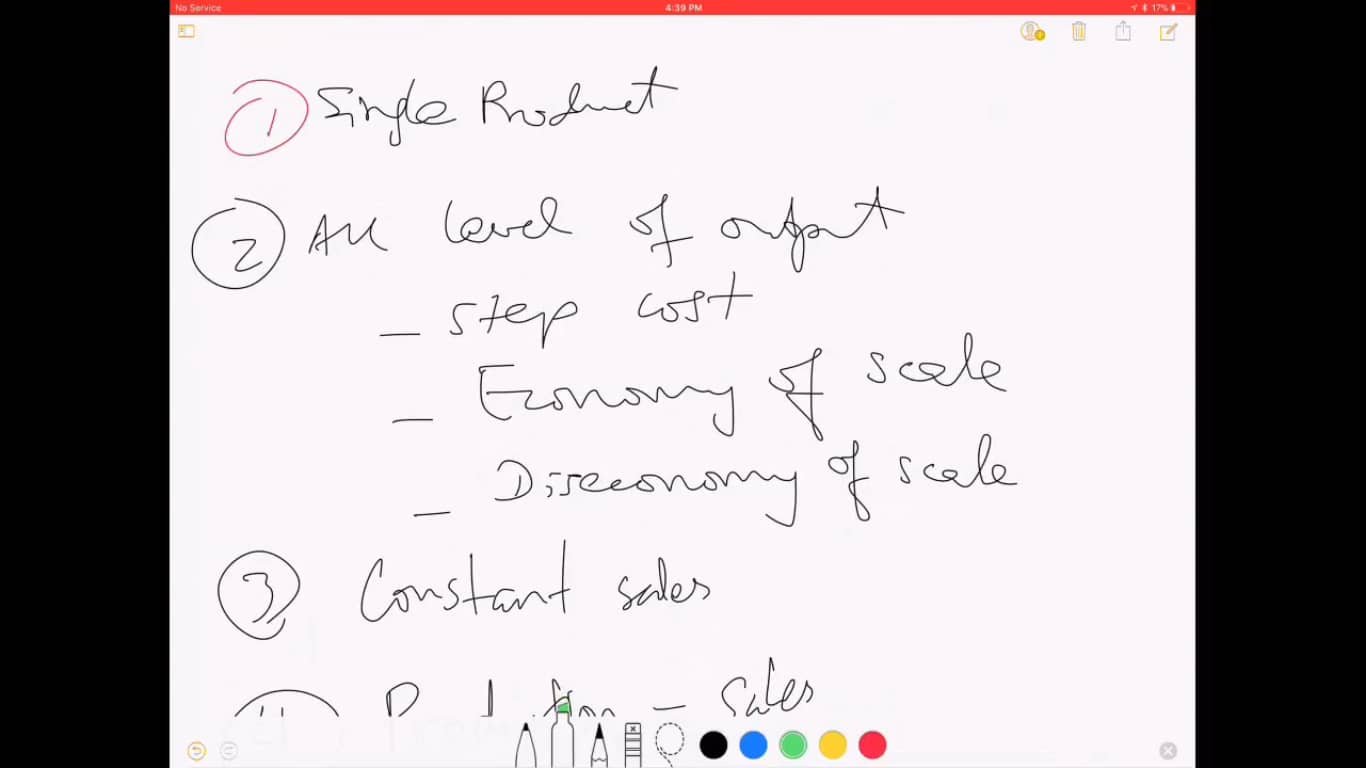 No Service 4:39 PM 17%
1 Single Product
2 All level of output
- step cost
- Economy of scale
- Diseconomy of scale
3 Constant sales
4 Production - sales